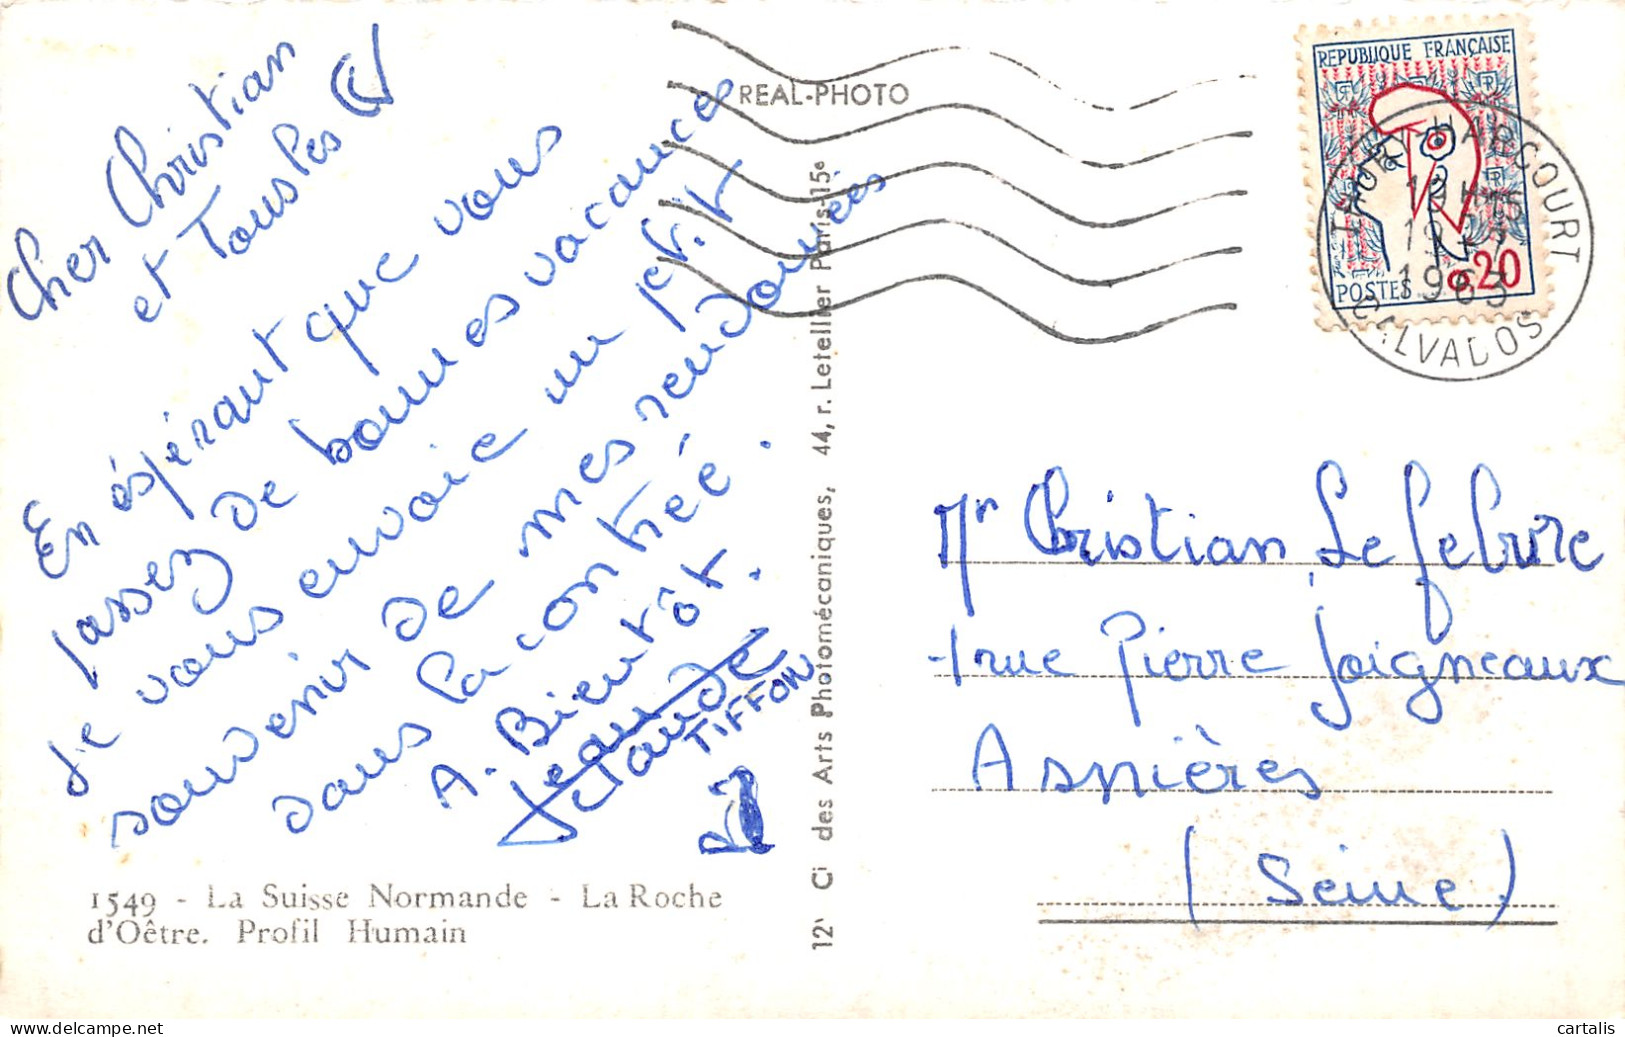 Cher Christian
et Tous les
En espérant que vous
passez de bonnes vacances
Je vous envoie un petit
souvenir de mes rendonnées
dans la contrée.
A. Bientôt.
Jean
Claude
TIFFON
1549 - La Suisse Normande - La Roche
d'Oêtre. Profil Humain
REAL-PHOTO
12 Ci des Arts Photomécaniques, 44, r. Letellier Paris-15e
REPUBLIQUE FRANÇAISE
POSTES 0,20
HARCOURT
19 -7
1963
CALVADOS
Mr Christian Lefebvre
1 rue Pierre Joigneaux
Asnières
(Seine)
cartalis